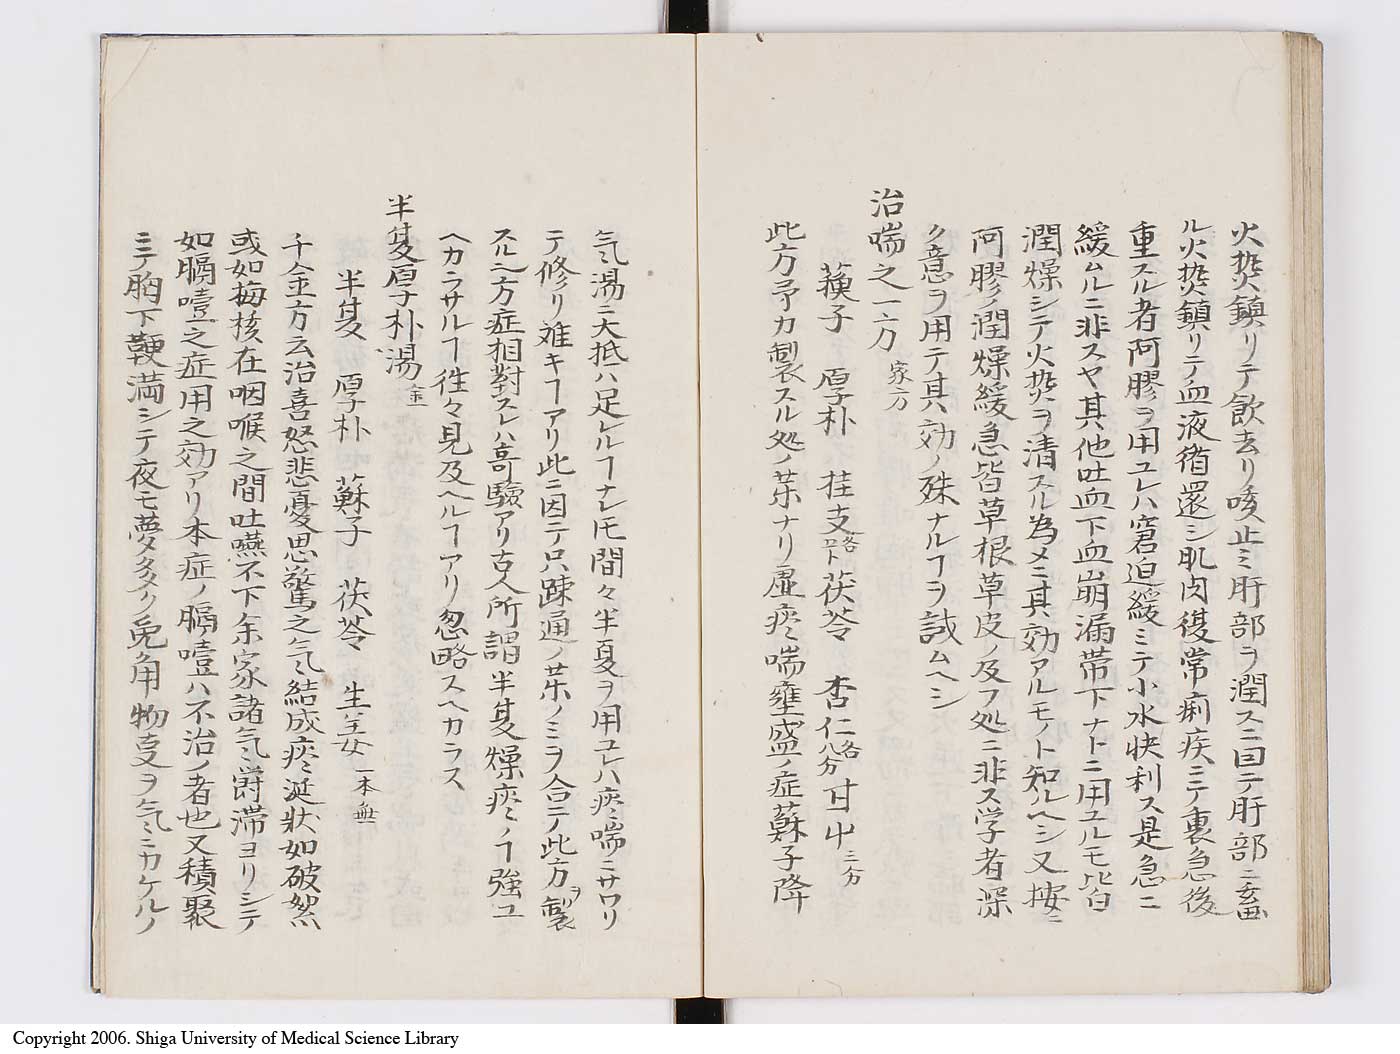 火熱鎮リテ飲去リ咳止ミ肝部ヲ潤スニ因テ肝部ニ畜
ル火熱鎮リテ血液循還シ肌肉復常痢疾ニテ裏急後
重スル者阿膠ヲ用ユレハ窘迫緩ミテ小水快利ス是急ニ
緩ムルニ非スヤ其他吐血下血崩漏帯下ナトニ用ユルモ皆
潤燥シテ火熱ヲ清スル為メニ其効アルモノト知ルヘシ又按ニ
阿膠ノ潤燥緩急皆草根草皮ノ及フ処ニ非ス学者深
ク意ヲ用テ其効ノ殊ナルヿヲ試ムヘシ
治喘之一方 家方
蘓子 厚朴 桂支各四ト 茯苓 杏仁各八分 甘中三分
此方予カ製スル処ノ藥ナリ虚痰喘壅盛ノ症蘓子降
气湯ニ大抵ハ足レルヿナレ𪜈間々半夏ヲ用ユレハ痰喘ニサワリ
テ修リ难キヿアリ此ニ因テ只疎通ノ藥ノミヲ合シテ此方ヲ製
スルニ方症相對スレハ竒驗アリ古人所謂半夏燥痰ノヿ強ユ
ヘカラサルヿ徃々見及ヘルヿアリ忽略スヘカラス
半夏厚朴湯 金
半夏 厚朴 蘇子 茯苓 生姜一本無
千金方云治喜怒悲憂思驚之气結成痰涎狀如破絮
或如梅核在咽喉之間吐嚥不下余家諸气欝滞ヨリシテ
如膈噎之症用之効アリ本症ノ膈噎ハ不治ノ者也又積聚
ニテ胸下鞕満シテ夜モ夢多ク兎角物叓ヲ气ニカケルノ
Copyright 2006. Shiga University of Medical Science Library